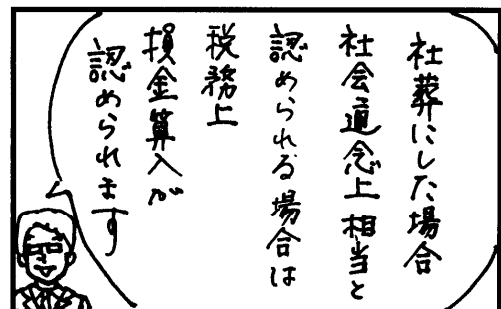 社葬にした場合
社会通念上相当と
認められる場合は
税務上
損金算入が
認められます